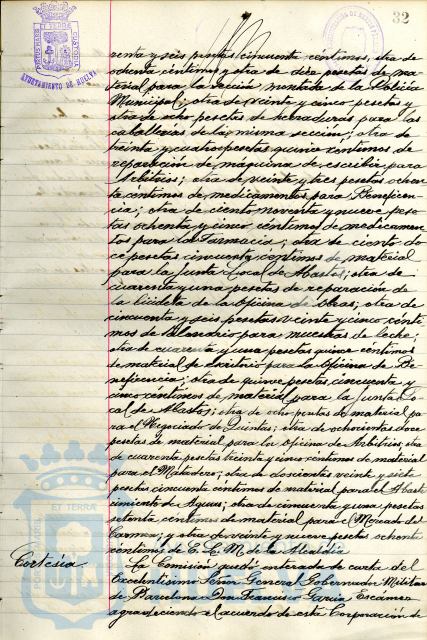 32
AYUNTAMIENTO DE HUELVA
renta y seis pesetas cincuenta céntimos; otra de
ochenta céntimos y otra de diez pesetas de ma-
terial para la sección montada de la Policía
Municipal; otra de veinte y cinco pesetas y
otra de ocho pesetas de herraduras para los
caballerias de la misma sección; otra de
treinta y cuatro pesetas quince céntimos de
reparación de máquina de escribir para
Arbitrios; otra de veinte y tres pesetas ochen-
ta céntimos de medicamentos para Beneficen-
cia; otra de ciento noventa y nueve pese-
tas ochenta y cinco céntimos de medicamen-
tos para la Farmacia; otra de ciento do-
ce pesetas cincuenta céntimos de material
para la Junta Local de Abastos; otra de
cuarenta y una pesetas de reparación de
la bicicleta de la Oficina de Obras; otra de
cincuenta y seis pesetas veinte y cinco cénti-
mos de para muestras de leche;
otra de cuarenta y una pesetas quince céntimos
de material de escritorio para la Oficina de Be-
neficencia; otra de quince pesetas cincuenta y
cinco céntimos de material para la Junta Lo-
cal de Abastos; otra de ocho pesetas de material pa-
ra el Negociado de Quintas; otra de ochocientas doce
pesetas de material para la oficina de Arbitrios; otra
de cuarenta pesetas veinte y cinco céntimos de material
para el Matadero; otra de doscientas veinte y siete
pesetas cincuenta céntimos de material para el Abaste-
cimiento de Aguas; otra de cincuenta y una pesetas
setenta céntimos de material para el Mercado del
Carmen; y otra de veinte y nueve pesetas ochenta
céntimos de E. L. M. de la Alcaldía
Cortesía. La Comisión quedó enterada de carta del
Excelentísimo Señor General Gobernador Militar
de Barcelona Don Francisco García Escámez
agradeciendo el acuerdo de esta Corporación de